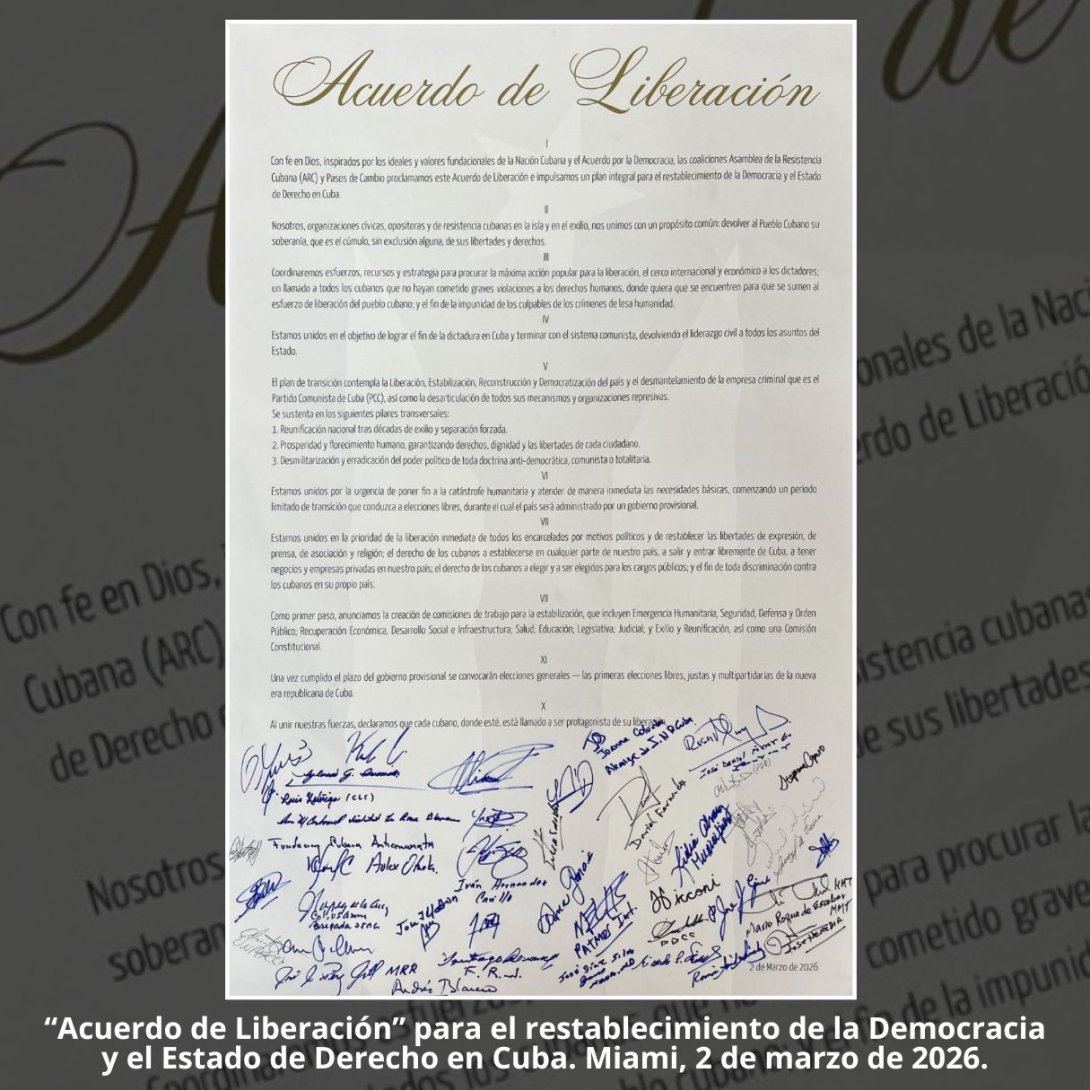 Acuerdo de Liberación
I
Con fe en Dios, inspirados por los ideales y valores fundacionales de la Nación Cubana y el Acuerdo por la Democracia, las coaliciones Asamblea de la Resistencia
Cubana (ARC) y Pasos de Cambio proclamamos este Acuerdo de Liberación e impulsamos un plan integral para el restablecimiento de la Democracia y el Estado
de Derecho en Cuba.
II
Nosotros, organizaciones cívicas, opositoras y de resistencia cubanas en la isla y en el exilio, nos unimos con un propósito común: devolver al Pueblo Cubano su
soberanía, que es el cúmulo, sin exclusión alguna, de sus libertades y derechos.
III
Coordinaremos esfuerzos, recursos y estrategia para procurar la máxima acción popular para la liberación, el cerco internacional y económico a los dictadores;
un llamado a todos los cubanos que no hayan cometido graves violaciones a los derechos humanos, donde quiera que se encuentren para que se sumen al
esfuerzo de liberación del pueblo cubano; y el fin de la impunidad de los culpables de los crímenes de lesa humanidad.
IV
Estamos unidos en el objetivo de lograr el fin de la dictadura en Cuba y terminar con el sistema comunista, devolviendo el liderazgo civil a todos los asuntos del
Estado.
V
El plan de transición contempla la Liberación, Estabilización, Reconstrucción y Democratización del país y el desmantelamiento de la empresa criminal que es el
Partido Comunista de Cuba (PCC), así como la desarticulación de todos sus mecanismos y organizaciones represivas.
Se sustenta en los siguientes pilares transversales:
1. Reunificación nacional tras décadas de exilio y separación forzada.
2. Prosperidad y florecimiento humano, garantizando derechos, dignidad y las libertades de cada ciudadano.
3. Desmilitarización y erradicación del poder político de toda doctrina anti-democrática, comunista o totalitaria.
VI
Estamos unidos por la urgencia de poner fin a la catástrofe humanitaria y atender de manera inmediata las necesidades básicas, comenzando un periodo
limitado de transición que conduzca a elecciones libres, durante el cual el país será administrado por un gobierno provisional.
VII
Estamos unidos en la prioridad de la liberación inmediata de todos los encarcelados por motivos políticos y de restablecer las libertades de expresión, de
prensa, de asociación y religión; el derecho de los cubanos a establecerse en cualquier parte de nuestro país, a salir y entrar libremente de Cuba, a tener
negocios y empresas privadas en nuestro país; el derecho de los cubanos a elegir y a ser elegidos para los cargos públicos; y el fin de toda discriminación contra
los cubanos en su propio país.
VII
Como primer paso, anunciamos la creación de comisiones de trabajo para la estabilización, que incluyen Emergencia Humanitaria; Seguridad, Defensa y Orden
Público; Recuperación Económica, Desarrollo Social e Infraestructura; Salud; Educación; Legislativa; Judicial; y Exilio y Reunificación, así como una Comisión
Constitucional.
XI
Una vez cumplido el plazo del gobierno provisional se convocarán elecciones generales — las primeras elecciones libres, justas y multipartidarias de la nueva
era republicana de Cuba.
X
Al unir nuestras fuerzas, declaramos que cada cubano, donde esté, está llamado a ser protagonista de su liberación.
José Daniel
Luis (CLC)
Daniel
Fundacion Cubana Anticomunista
Iván Hernandez
Carrillo
PATMOS Inst.
PDCC
Mario Roque de Escobar
MMT
MRR
Santiago
F. R. J.
José Díaz Silva
Andrés Blanco
2 de Marzo de 2026
“Acuerdo de Liberación” para el restablecimiento de la Democracia
y el Estado de Derecho en Cuba. Miami, 2 de marzo de 2026.